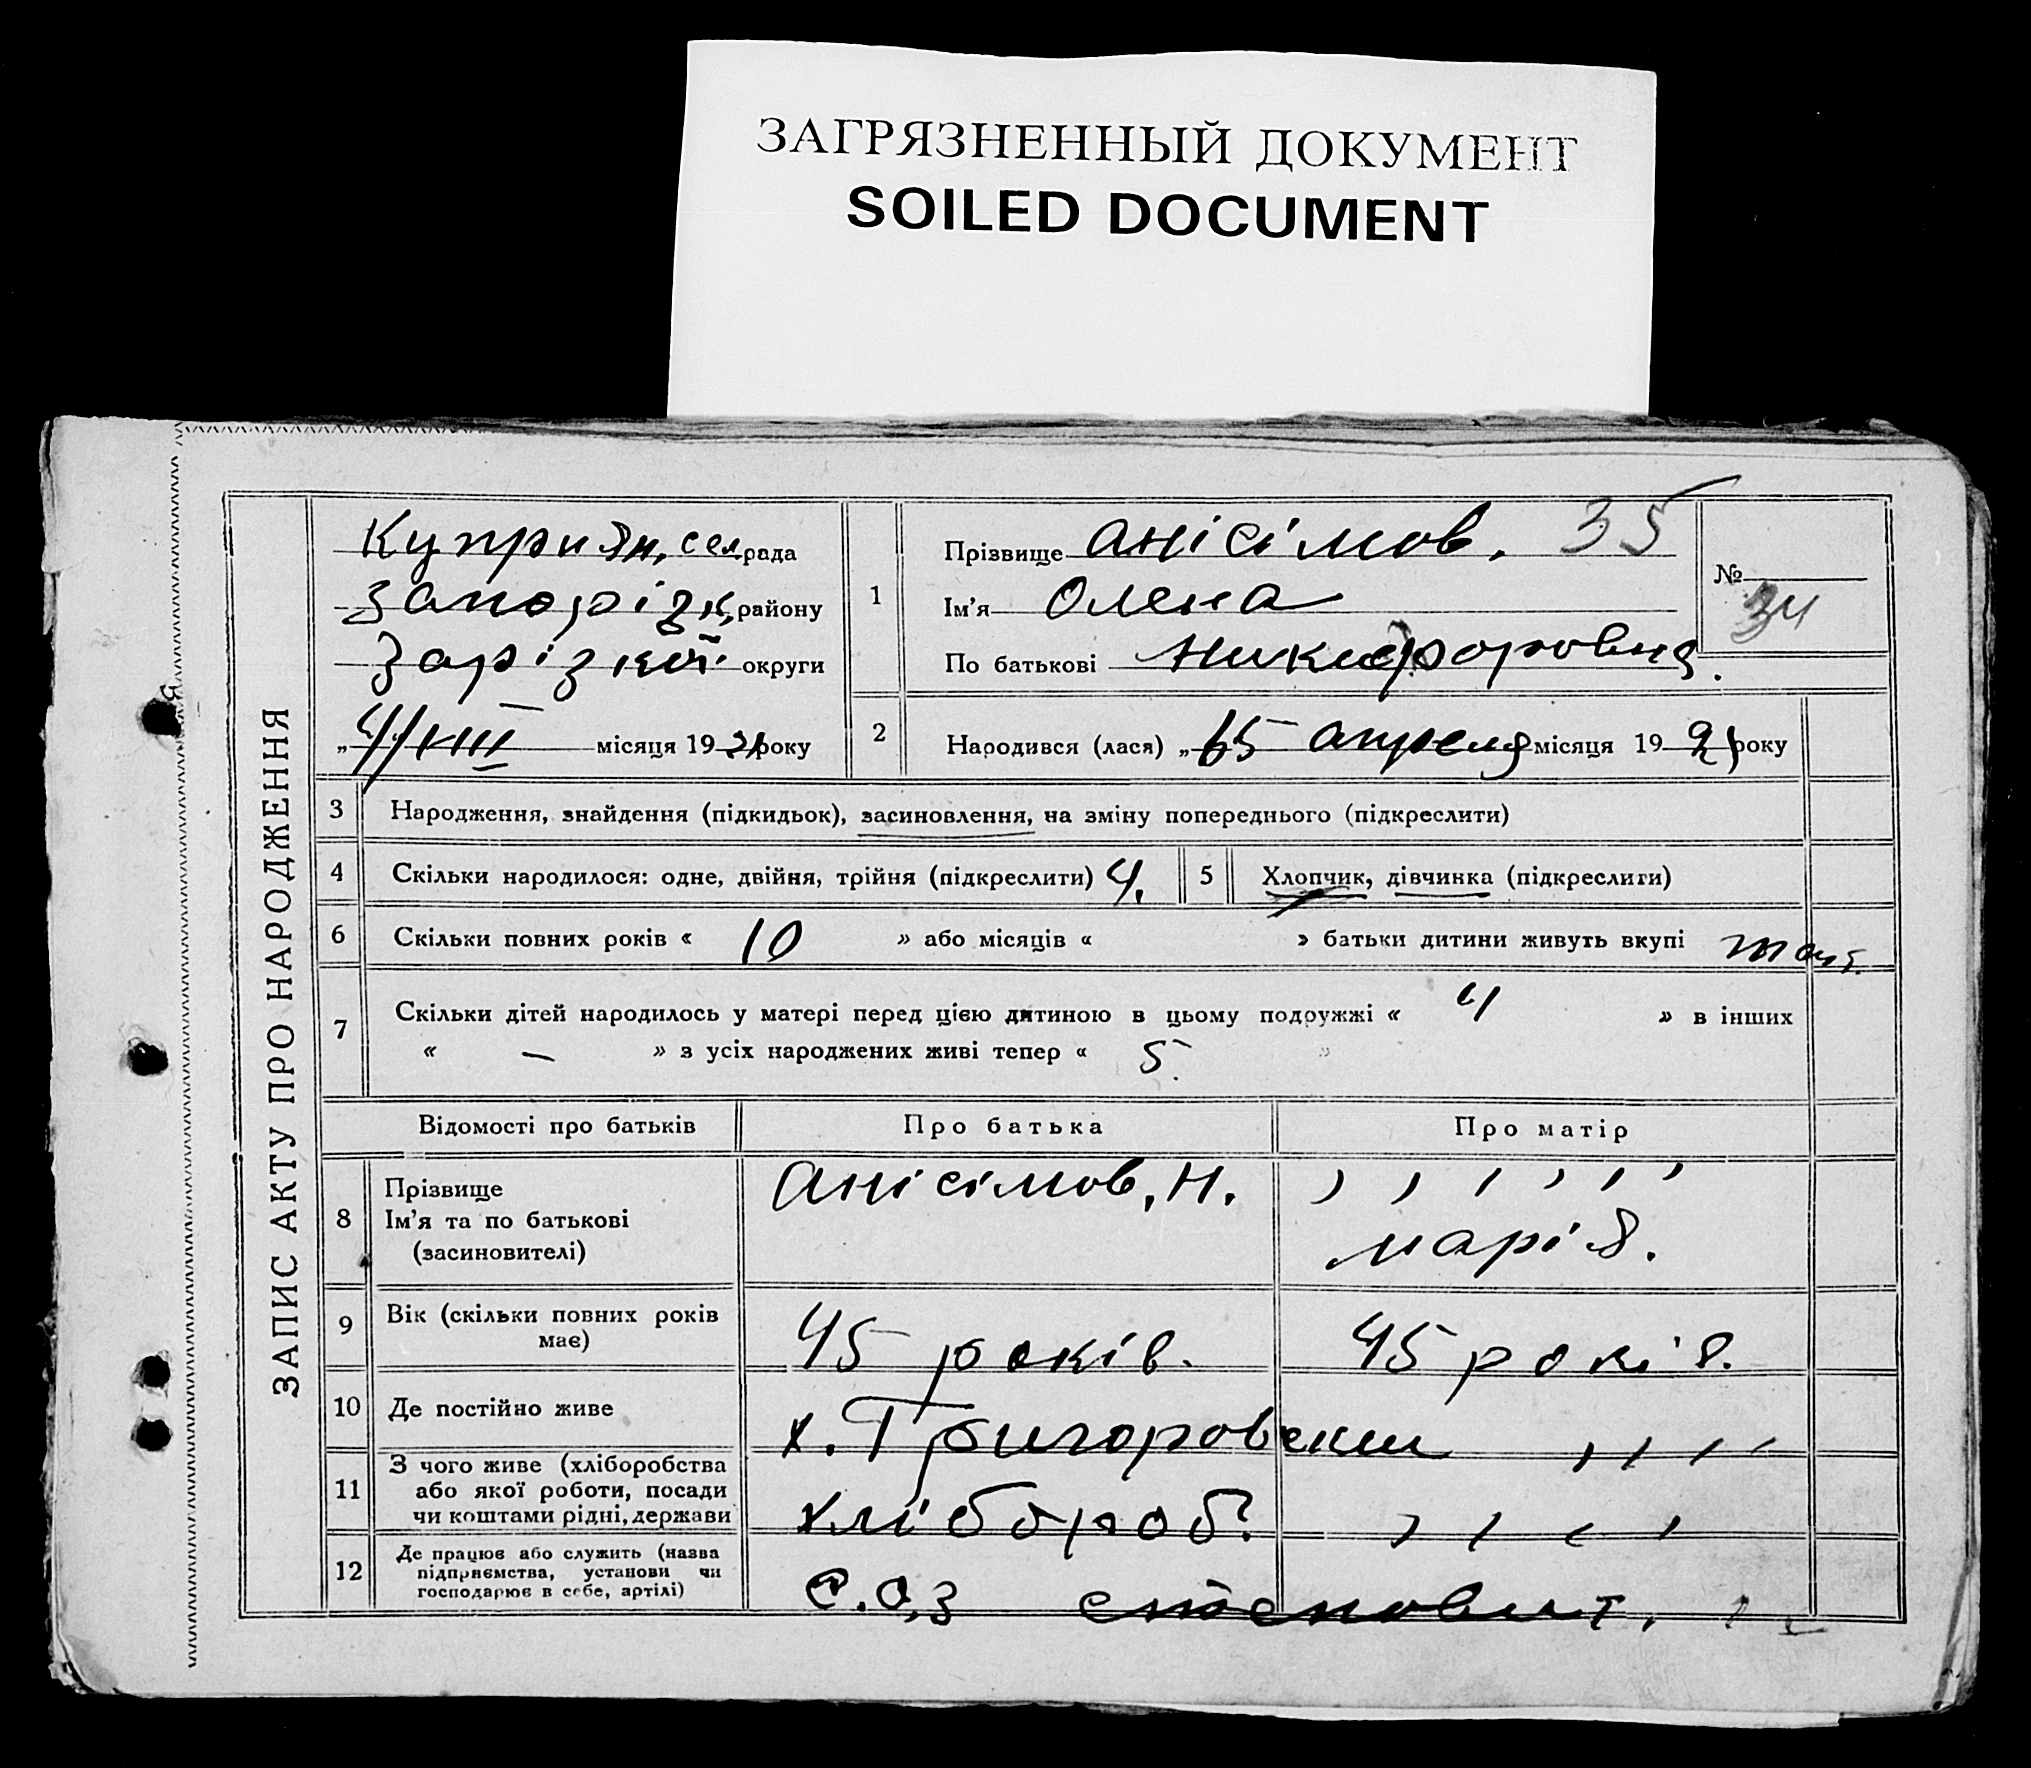 ЗАГРЯЗНЕННЫЙ ДОКУМЕНТ
SOILED DOCUMENT
ЗАПИС АКТУ ПРО НАРОДЖЕННЯ
Куприян. сел.рада
Запорізк. району
округи
„4/VIII місяця 1921 року
1
Прізвище Анісімов. 35
Ім'я Олена
По батькові Никифоровна.
№
34
2
Народився (лася) „15 апреля місяця 1921 року
3 Народження, знайдення (підкидьок), засиновлення, на зміну попереднього (підкреслити)
4 Скільки народилося: одне, двійня, трійня (підкреслити) 4. 5 Хлопчик, дівчинка (підкреслити)
6 Скільки повних років « 10 » або місяців « » батьки дитини живуть вкупі
7 Скільки дітей народилось у матері перед цією дитиною в цьому подружжі « 4 » в інших
« — » з усіх народжених живі тепер « 5. »
Відомості про батьків Про батька Про матір
8 Прізвище
Ім'я та по батькові
(засиновителі)
Анісімов, Н.
, , , , , ,
Марія.
9 Вік (скільки повних років
має)
45 років. 45 років.
10 Де постійно живе
х. Григоровский , , , ,
11 З чого живе (хліборобства
або якої роботи, посади
чи коштами рідні, держави
хлібороб. , , , ,
12 Де працює або служить (назва
підприємства, установи чи
господарює в себе, артілі)
С.О.З